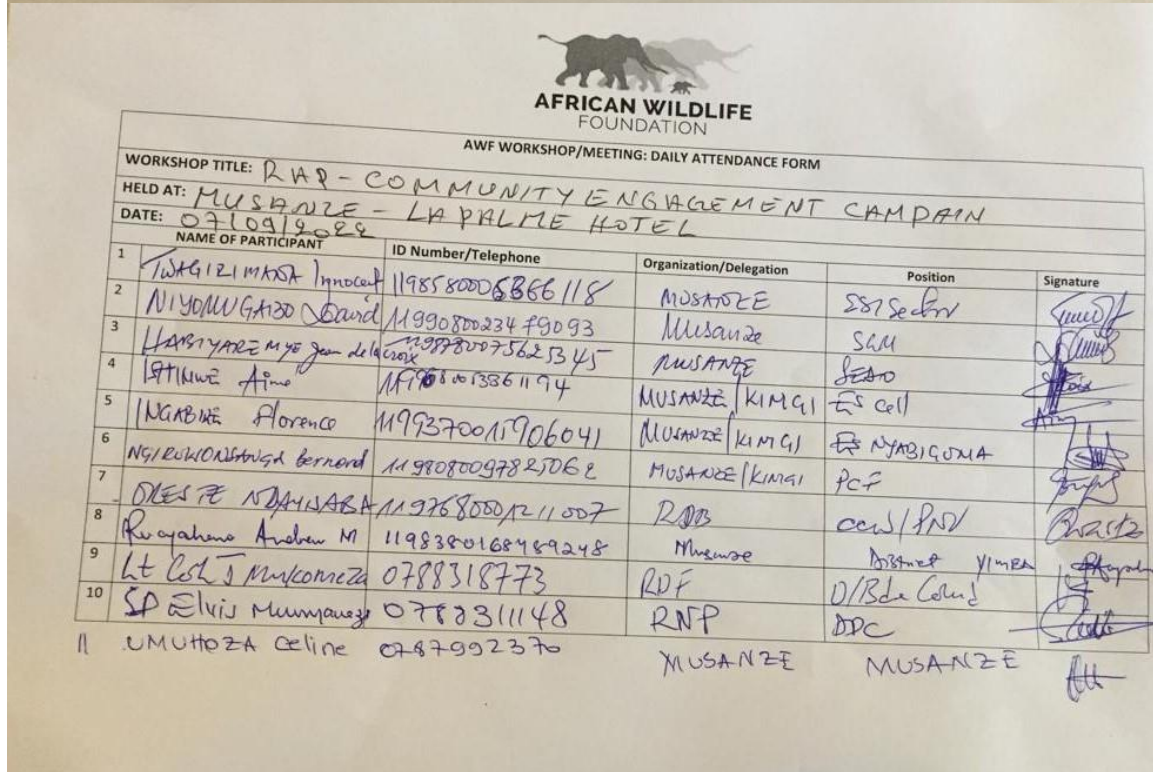 AFRICAN WILDLIFE
FOUNDATION
AWF WORKSHOP/MEETING: DAILY ATTENDANCE FORM
WORKSHOP TITLE: RAP - COMMUNITY ENGAGEMENT CAMPAIN
HELD AT: MUSANZE - LA PALME HOTEL
DATE: 07/09/2022
NAME OF PARTICIPANT ID Number/Telephone Organization/Delegation Position Signature
1 TWAGIRIMANA Innocent MUSANZE
2 NIYOMUGABO David 1199080023479093 Musanze SGM
3 HABIYAREMYE Jean de la croix 1198780075625345 MUSANZE SEDO
4 Aimé MUSANZE/KIMGI ES Cell
5 INGABIRE Florence 1199370011906041 MUSANZE/KIMGI ES NYABIGOMA
6 Bernard 1198080097825062 MUSANZE/KIMGI PCF
7 ORESTE NDAYISABA RDB
8 Andrew M 1198380168489248 Musanze District
9 Lt Col J 0788318773 RDF
10 SP Elvis 0788311148 RNP DPC
11 UMUHOZA Celine 0787992370 MUSANZE MUSANZE